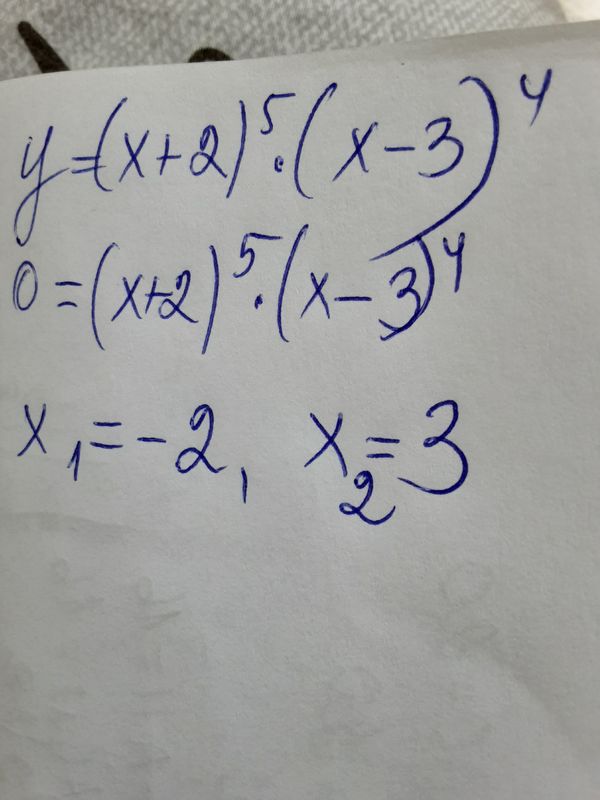 y=(x+2)⁵·(x-3)⁴
0=(x+2)⁵·(x-3)⁴
x₁=-2, x₂=3